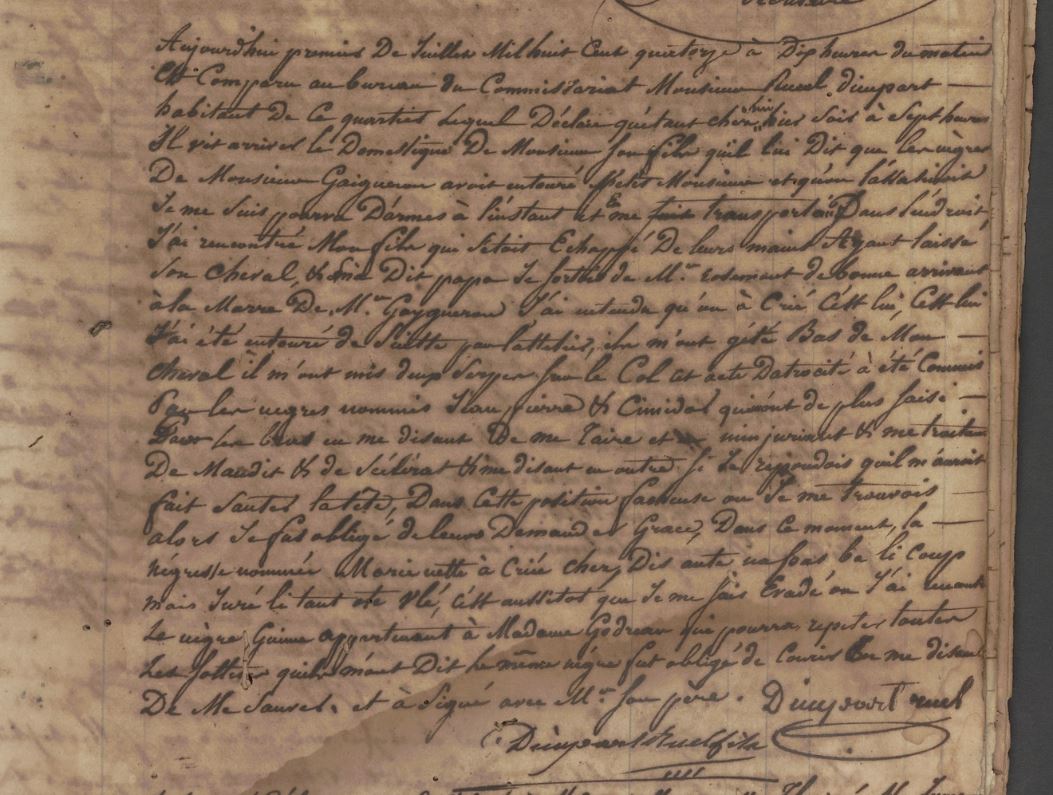 Aujourdhui premier De Juillet Mil huit Cent quatorze à Dix heures du matin
Est Comparu au bureau du Commissariat Monsieur Ruel Dieupart
habitant De Ce quartier Lequel Déclare qu'étant chez lui hier Soir à Sept heures
Il vit arriver le Domestique De Monsieur son fils qu'il lui Dit que les nègres
De Monsieur Gaigneron avoit entouré Petit Monsieur et qu'on
Je me suis pourvu D'armes à l'instant et me suis transporté Dans l'endroit
J'ai rencontré Mon fils qui s'etoit Echappé De leurs mains Ayant laissé
Son Cheval, & me Dit papa Je sortés de Mr. rosemont de bonne arrivant
à la Marre De Mr. Gaygneron J'ai entendu qu'on à Crié C'est lui, C'est lui
J'ai été entouré de Suitte par l'attelier, ils m'ont gété Bas de Mon
Cheval il m'ont mis deux Serpes sur le Col cet acte D'atrocité à été Commis
Par les nègres nommés Jean pierre & qui m'ont de plus saisi
les bras en me disant De me Taire et m'injuriant & me traitan
De Maudit & de Scélérat & me disant en outre si Je repondois quil m'auroit
fait Sauter la tête, Dans Cette position facheuse ou Je me trouvois
alors Je fus obligé de leurs Demander Grace, Dans Ce moment, la
Négresse nommée Marie à Criée Dis pas ba li Coup
mais li tant vlé, C'est aussitot que Je me suis Evadé ou J'ai
Le nègre appartenant à Madame Godreau qui pourra repeter toutes
Les sottises quils m'ont Dit Le même nègre fut obligé de Courir me disant
De Me Sauver. et à Signé avec Mr. son père. Dieupart ruel
Dieupart Ruel fils